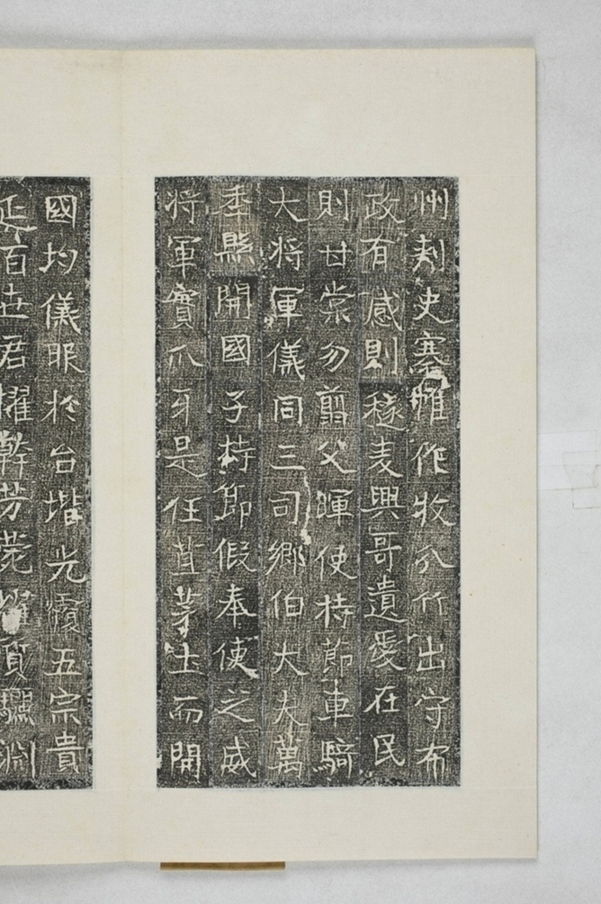 州刺史褰帷作牧分竹出守布
政有感則穟麦興哥遺愛在民
則甘棠勿翦父暉使持節車騎
大将軍儀同三司鄉伯大夫萬
季縣開國子持節假奉使之威
将軍實爪牙是任苴茅土而開
國均儀眠於台堦光續五宗貴
延百世君擢幹芳莸資驪渊